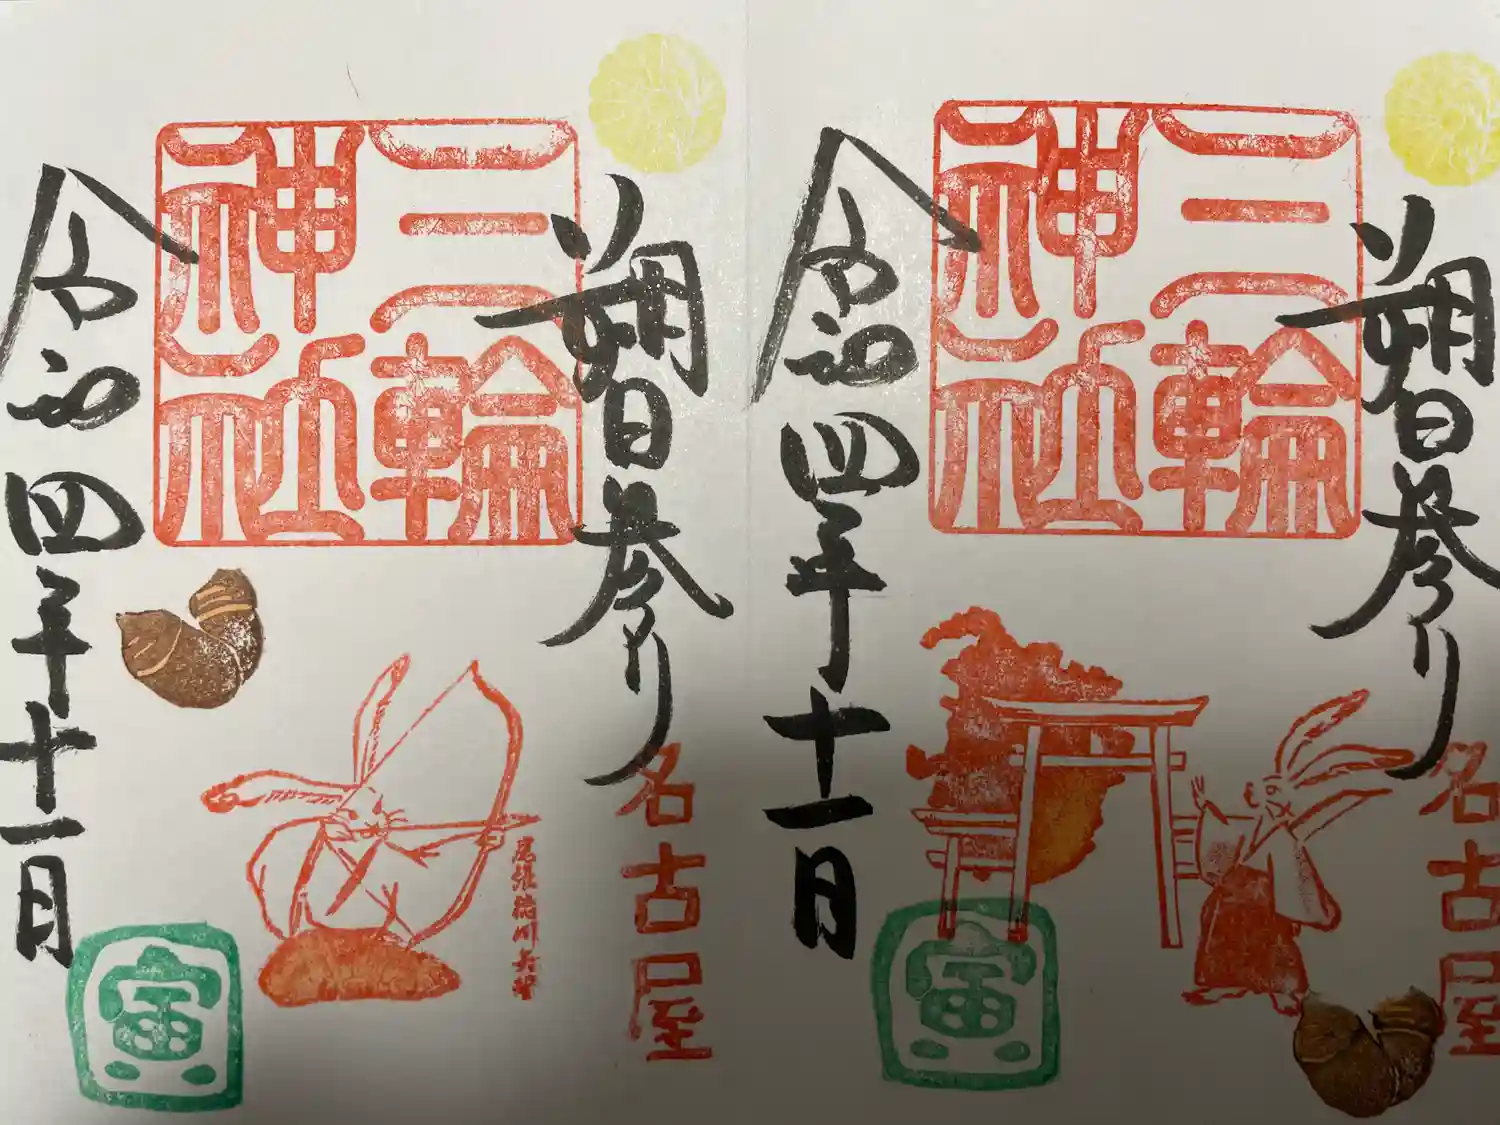 朔日参り
名古屋
三輪
神社
尾張徳川兵誓
令和四年十一月
寅
朔日参り
名古屋
三輪
神社
令和四年十一月
寅